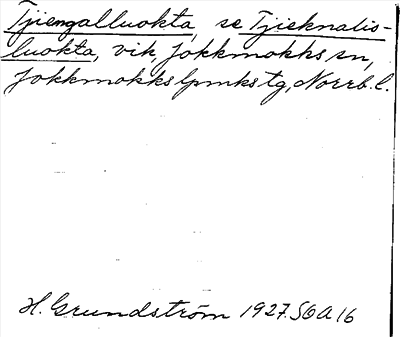 Tjiengalluokta, se Tjieknalis-
luokta, vik, Jokkmokks sn,
Jokkmokks lpmks tg, Norrb. l.
H. Grundström 1927. SOA 16